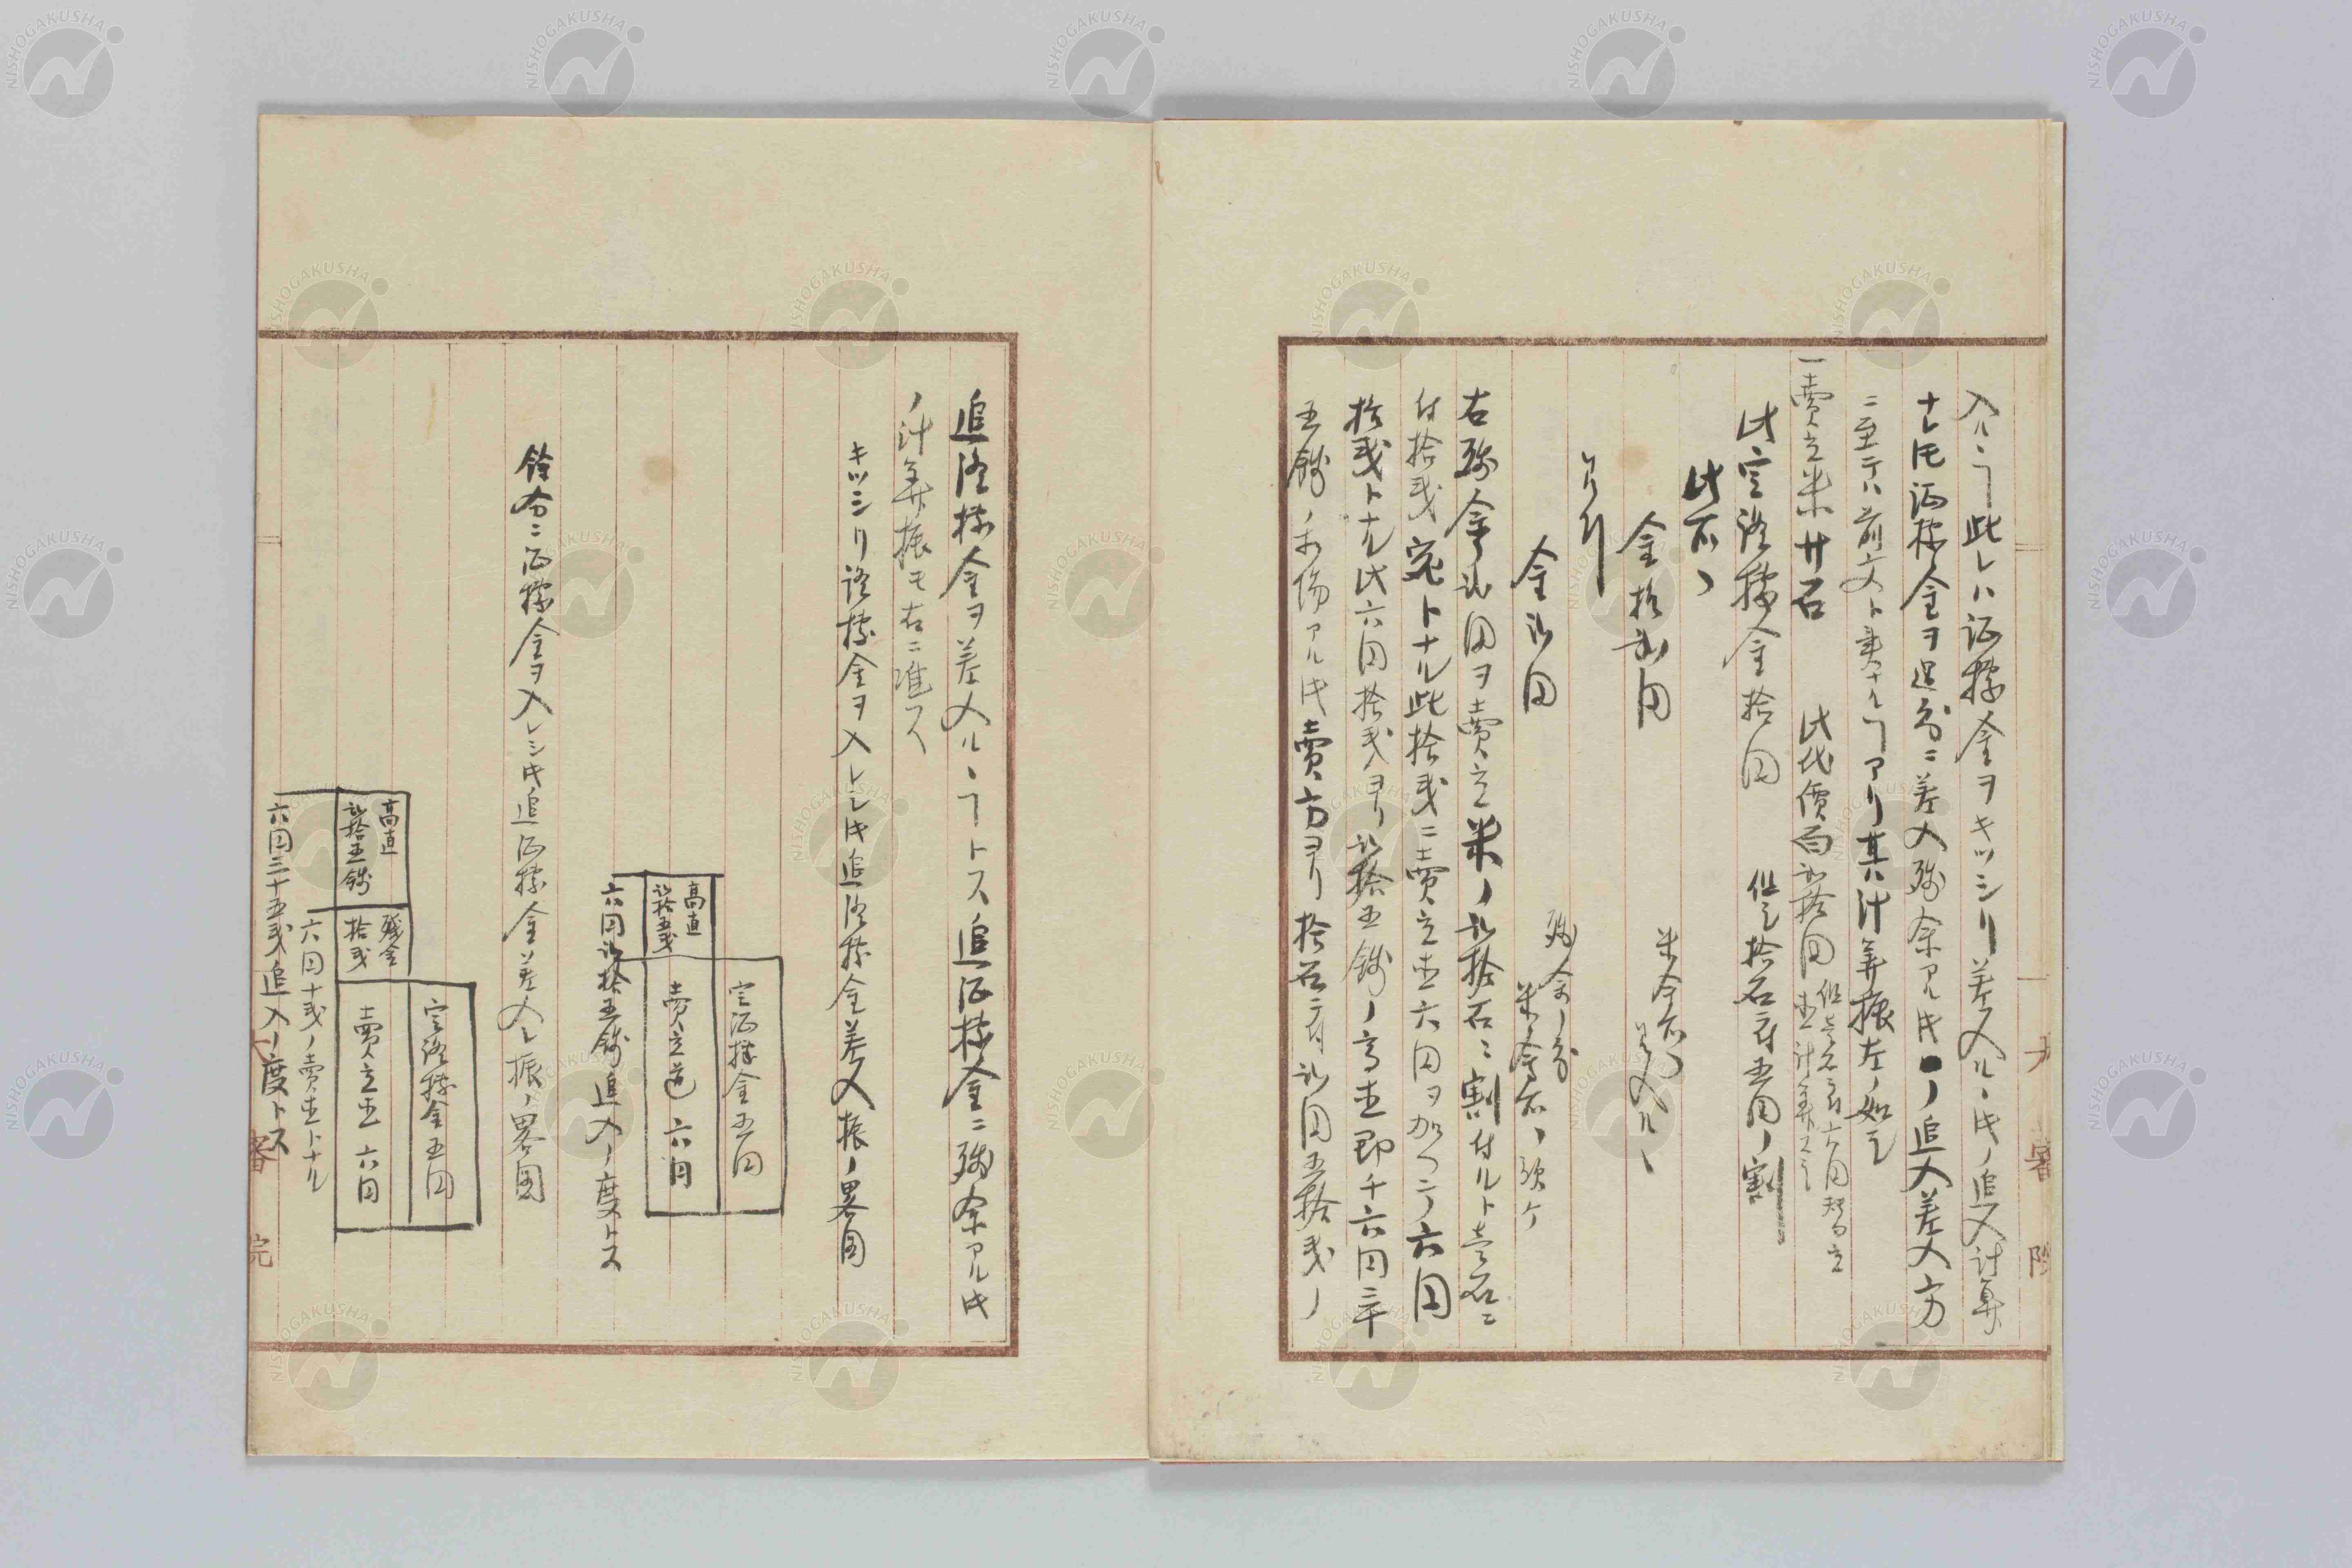 入ルヿ此レハ証據金ヲキッシリ差入ル丶時ノ追入計算
ナレ𪜈証據金ヲ過分ニ差入残余アル時ノ追入差入方
ニ至テハ前文ト異ナルヿアリ其計算振左ノ如シ
一賣立米廿石 此代價百弐拾円 但壱石ニ付六円替ニ立
直計算スル
此定証據金拾円 但シ拾石ニ付五円ノ割
此不丶
金拾弐円
差引
金弐円 残余ノ分
右残余弐円ヲ賣立米ノ弐拾石ニ割付ルト壱石ニ
付拾戋宛トナル此拾戋ニ賣立直六円ヲ加ヘテ六円
拾戋トナル此六円拾戋ヨリ弐拾五銭ノ高直即チ六円三十
五銭ノ相場アル時賣方ヨリ拾石ニ付弐円五拾戋ノ
追証據金ヲ差入ル丶ヿトス追証據金ニ残余アル時
ノ計算振モ右ニ准ス
キッシリ証據金ヲ入レシ時追証據金差入振ノ畧図
定証據金五円
賣立直 六円
高直
弐拾五戋
六円弐拾五銭追入ノ度トス
餘分ニ証據金ヲ入レシ時追証據金差入レ振ノ畧図
定証據金五円
賣立直 六円
残金
拾戋
高直
弐拾五銭
六円十戋ノ賣直トナル
六円三十五戋追入ノ度トス
大審院
NISHOGAKUSHA